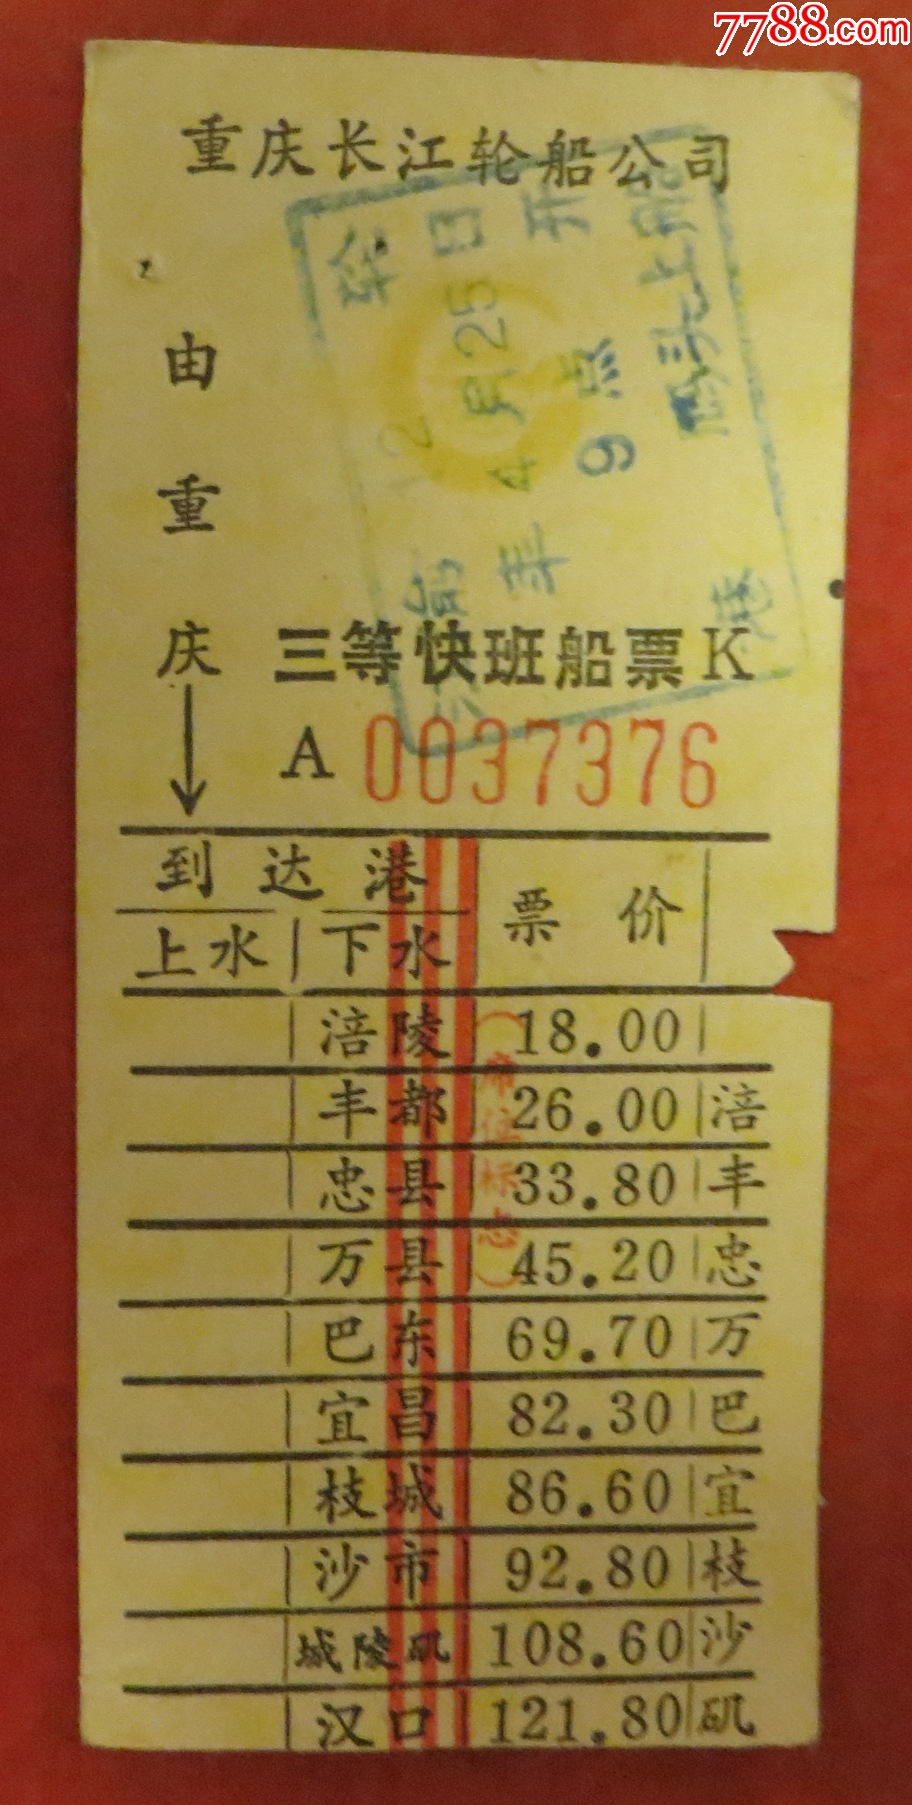 7788.com
重庆长江轮船公司
由重庆
轮
12
4月25日
年
9点开
码头上船
港
三等快班船票K
A 0037376
到达港 票价
上水 下水
(席位标志)
涪陵 18.00
丰都 26.00 涪
忠县 33.80 丰
万县 45.20 忠
巴东 69.70 万
宜昌 82.30 巴
枝城 86.60 宜
沙市 92.80 枝
城陵矶 108.60 沙
汉口 121.80 矶